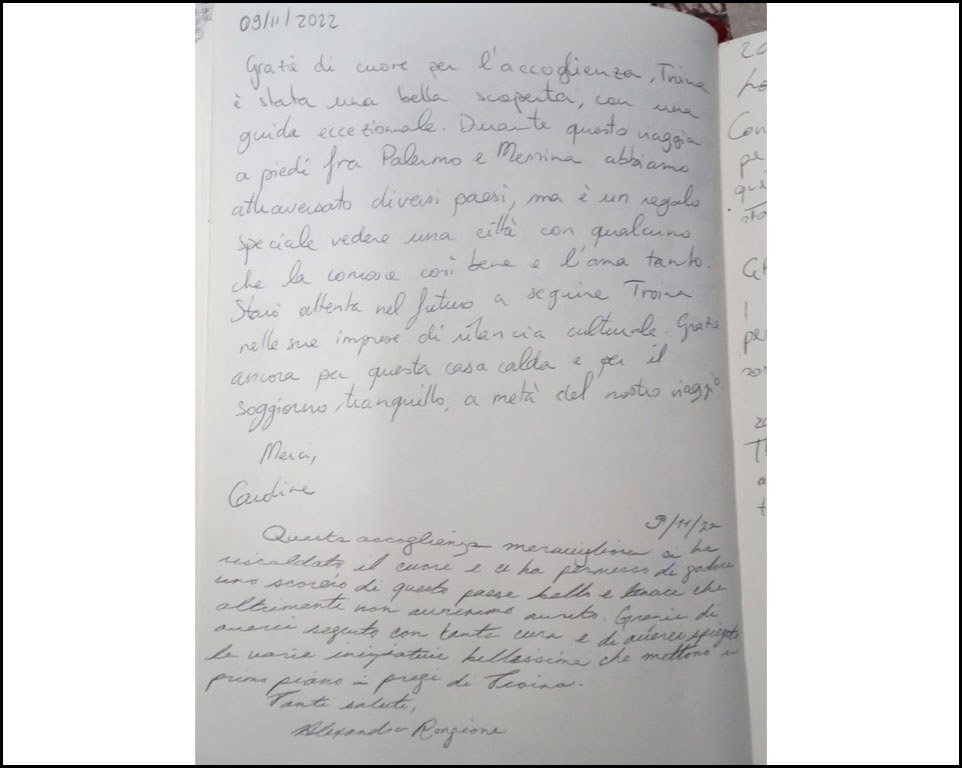 09/11/2022
Grazie di cuore per l'accoglienza, Troina
è stata una bella scoperta, con una
guida eccezionale. Durante questo viaggio
a piedi fra Palermo e Messina abbiamo
attraversato diversi paesi, ma è un regalo
speciale vedere una città con qualcuno
che la conosce così bene e l'ama tanto.
Starò attenta nel futuro a seguire Troina
nelle sue imprese di rilancia culturale. Grazie
ancora per questa casa calda e per il
soggiorno, tranquillo, a metà del nostro viaggio.
Merci,
Caroline
9/11/22
Questa accoglienza meravigliosa ci ha
riscaldato il cuore e ci ha permesso di godere
uno scorcio di questo paese bello e tenace che
altrimenti non avremmo avuto. Grazie di
averci seguito con tanta cura e di averci spiegato
le varie iniziative bellissime che mettono in
primo piano i pregi di Troina.
Tanti saluti,
Alexandra Rongione
20
Con
pe
que
sta
I
per
20
Th
a
t